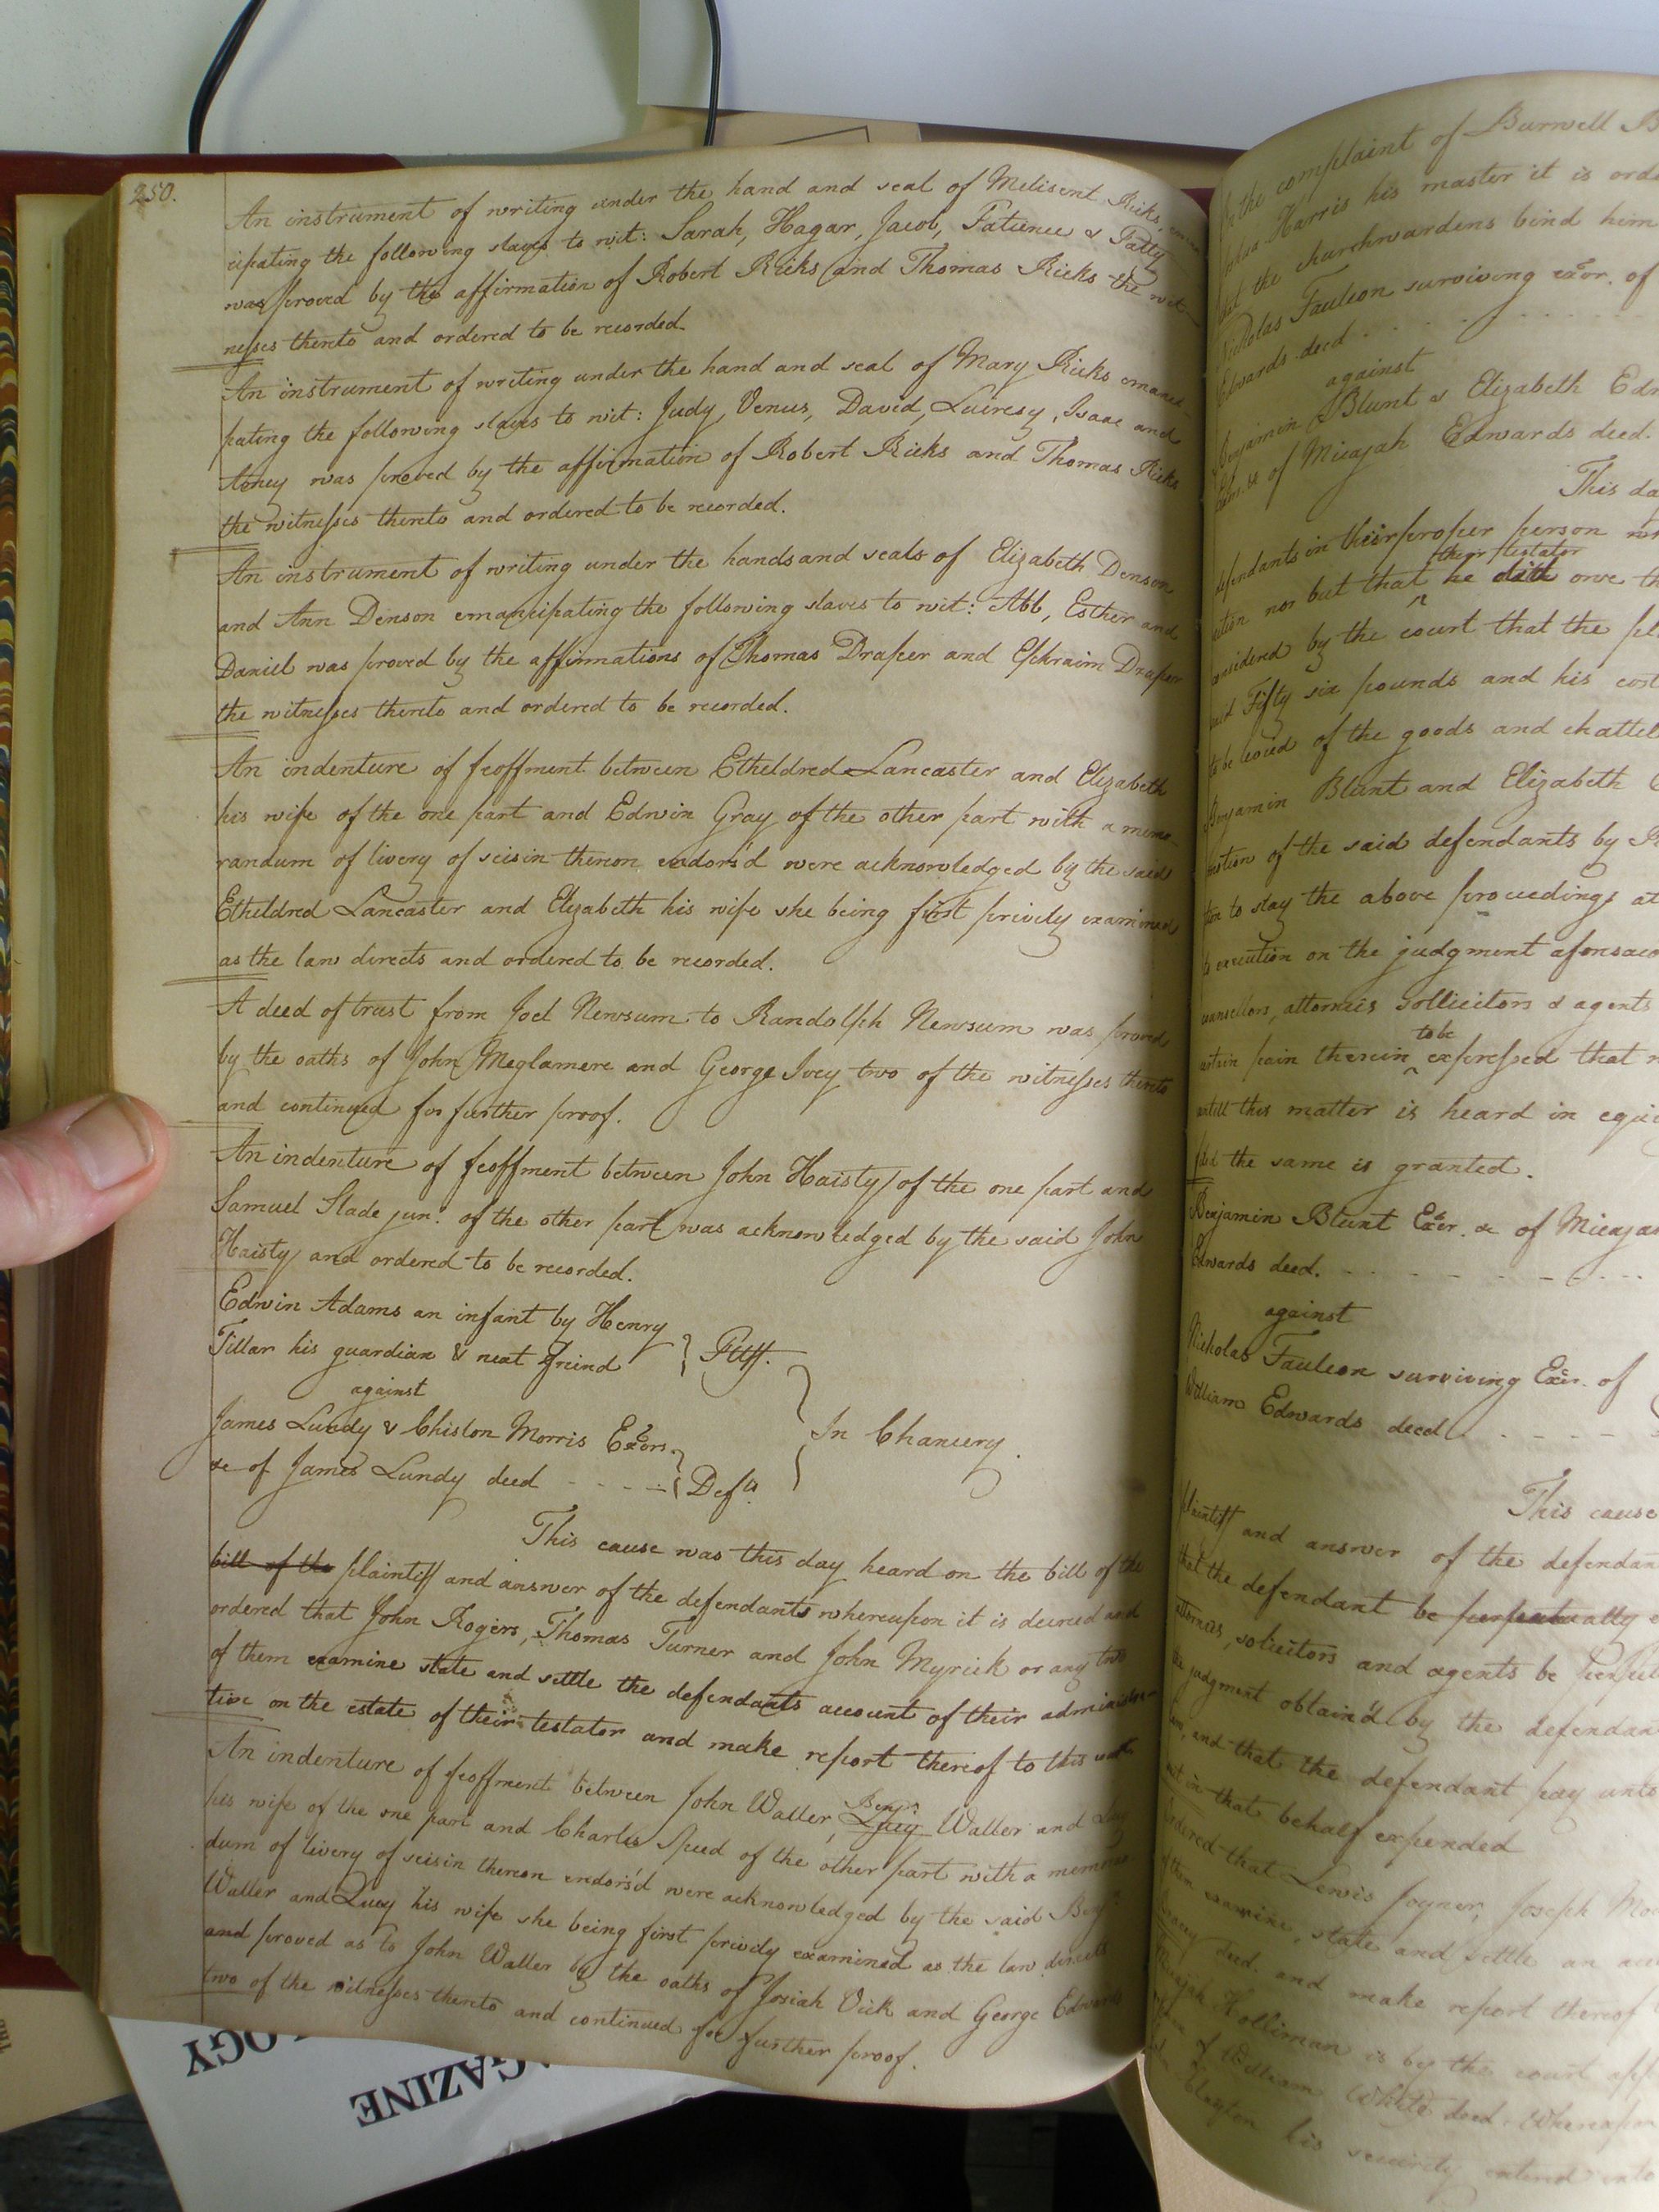 250.
An instrument of writing under the hand and seal of Melisent Ricks, eman
cipating the following slaves to wit: Sarah, Hagar, Jacob, Patience & Patty
was proved by the affirmation of Robert Ricks and Thomas Ricks the wit-
nesses thereto and ordered to be recorded.
An instrument of writing under the hand and seal of Mary Ricks emanci-
pating the following slaves to wit: Judy, Venus, David, Lucresy, Isaac and
was proved by the affirmation of Robert Ricks and Thomas Ricks
the witnesses thereto and ordered to be recorded.
An instrument of writing under the hands and seals of Elizabeth Denson
and Ann Denson emancipating the following slaves to wit: Abb, Esther and
Daniel was proved by the affirmations of Thomas Draper and Ephraim Draper
the witnesses thereto and ordered to be recorded.
An indenture of feoffment between Etheldred Lancaster and Elizabeth
his wife of the one part and Edwin Gray of the other part with a memo-
randum of livery of seisin thereon endors'd were acknowledged by the said
Etheldred Lancaster and Elizabeth his wife she being first privily examined
as the law directs and ordered to be recorded.
A deed of trust from Joel Newsum to Randolph Newsum was proved
by the oaths of John Meglamere and George Ivey two of the witnesses thereto
and continued for further proof.
An indenture of feoffment between John Haisty of the one part and
Samuel Slade jun. of the other part was acknowledged by the said John
Haisty and ordered to be recorded.
Edwin Adams an infant by Henry
Tillar his guardian & next freind } Pltff.
against
James Lundy & Chislon Morris Exors.
&c of James Lundy decd - - - - } Defts.
} In Chancery.
This cause was this day heard on the bill of the
bill of the plaintiff and answer of the defendants whereupon it is decreed and
ordered that John Rogers, Thomas Turner and John Myrick or any two
of them examine state and settle the defendants account of their administra-
tion on the estate of their testator and make report thereof to this court
An indenture of feoffment between John Waller, Lucy Benjn. Waller and Lucy
his wife of the one part and Charles Speed of the other part with a memoran
dum of livery of seisin thereon endors'd were acknowledged by the said Benjn.
Waller and Lucy his wife she being first privily examined as the law directs
and proved as to John Waller by the oaths of Josiah Vick and George Edwards
two of the witnesses thereto and continued for further proof.
the complaint of Burwell B
Harris his master it is orde
the churchwardens bind him
Nicholas Faulcon surviving exor. of
Edwards decd
against
Benjamin Blunt & Elizabeth Edw
of Micajah Edwards decd.
This da
defendants in their proper person
nor but that their testator he doth owe th
considered by the court that the pl
Fifty six pounds and his cost
to be levied of the goods and chattel
Benjamin Blunt and Elizabeth E
of the said defendants by
to stay the above proceedings at
execution on the judgment aforesaid
counsellors, attornies sollicitors & agents
certain pain therein to be expressed that
untill this matter is heard in equi
the same is granted.
Benjamin Blunt Exor. &c of Micaja
Edwards decd.
against
Nicholas Faulcon surviving Exor. of
William Edwards decd
This cause
plaintiff and answer of the defendan
that the defendant be perpetually
attornies, solicitors and agents be
the judgment obtain'd by the defendan
and that the defendant pay unto
in that behalf expended
Ordered that Lewis Joyner, Joseph
of them examine, state and settle an
decd. and make report thereof
Holliman is by the court app
of William White decd. Whereupon
Clayton his security entered into
GAZINE
OGY